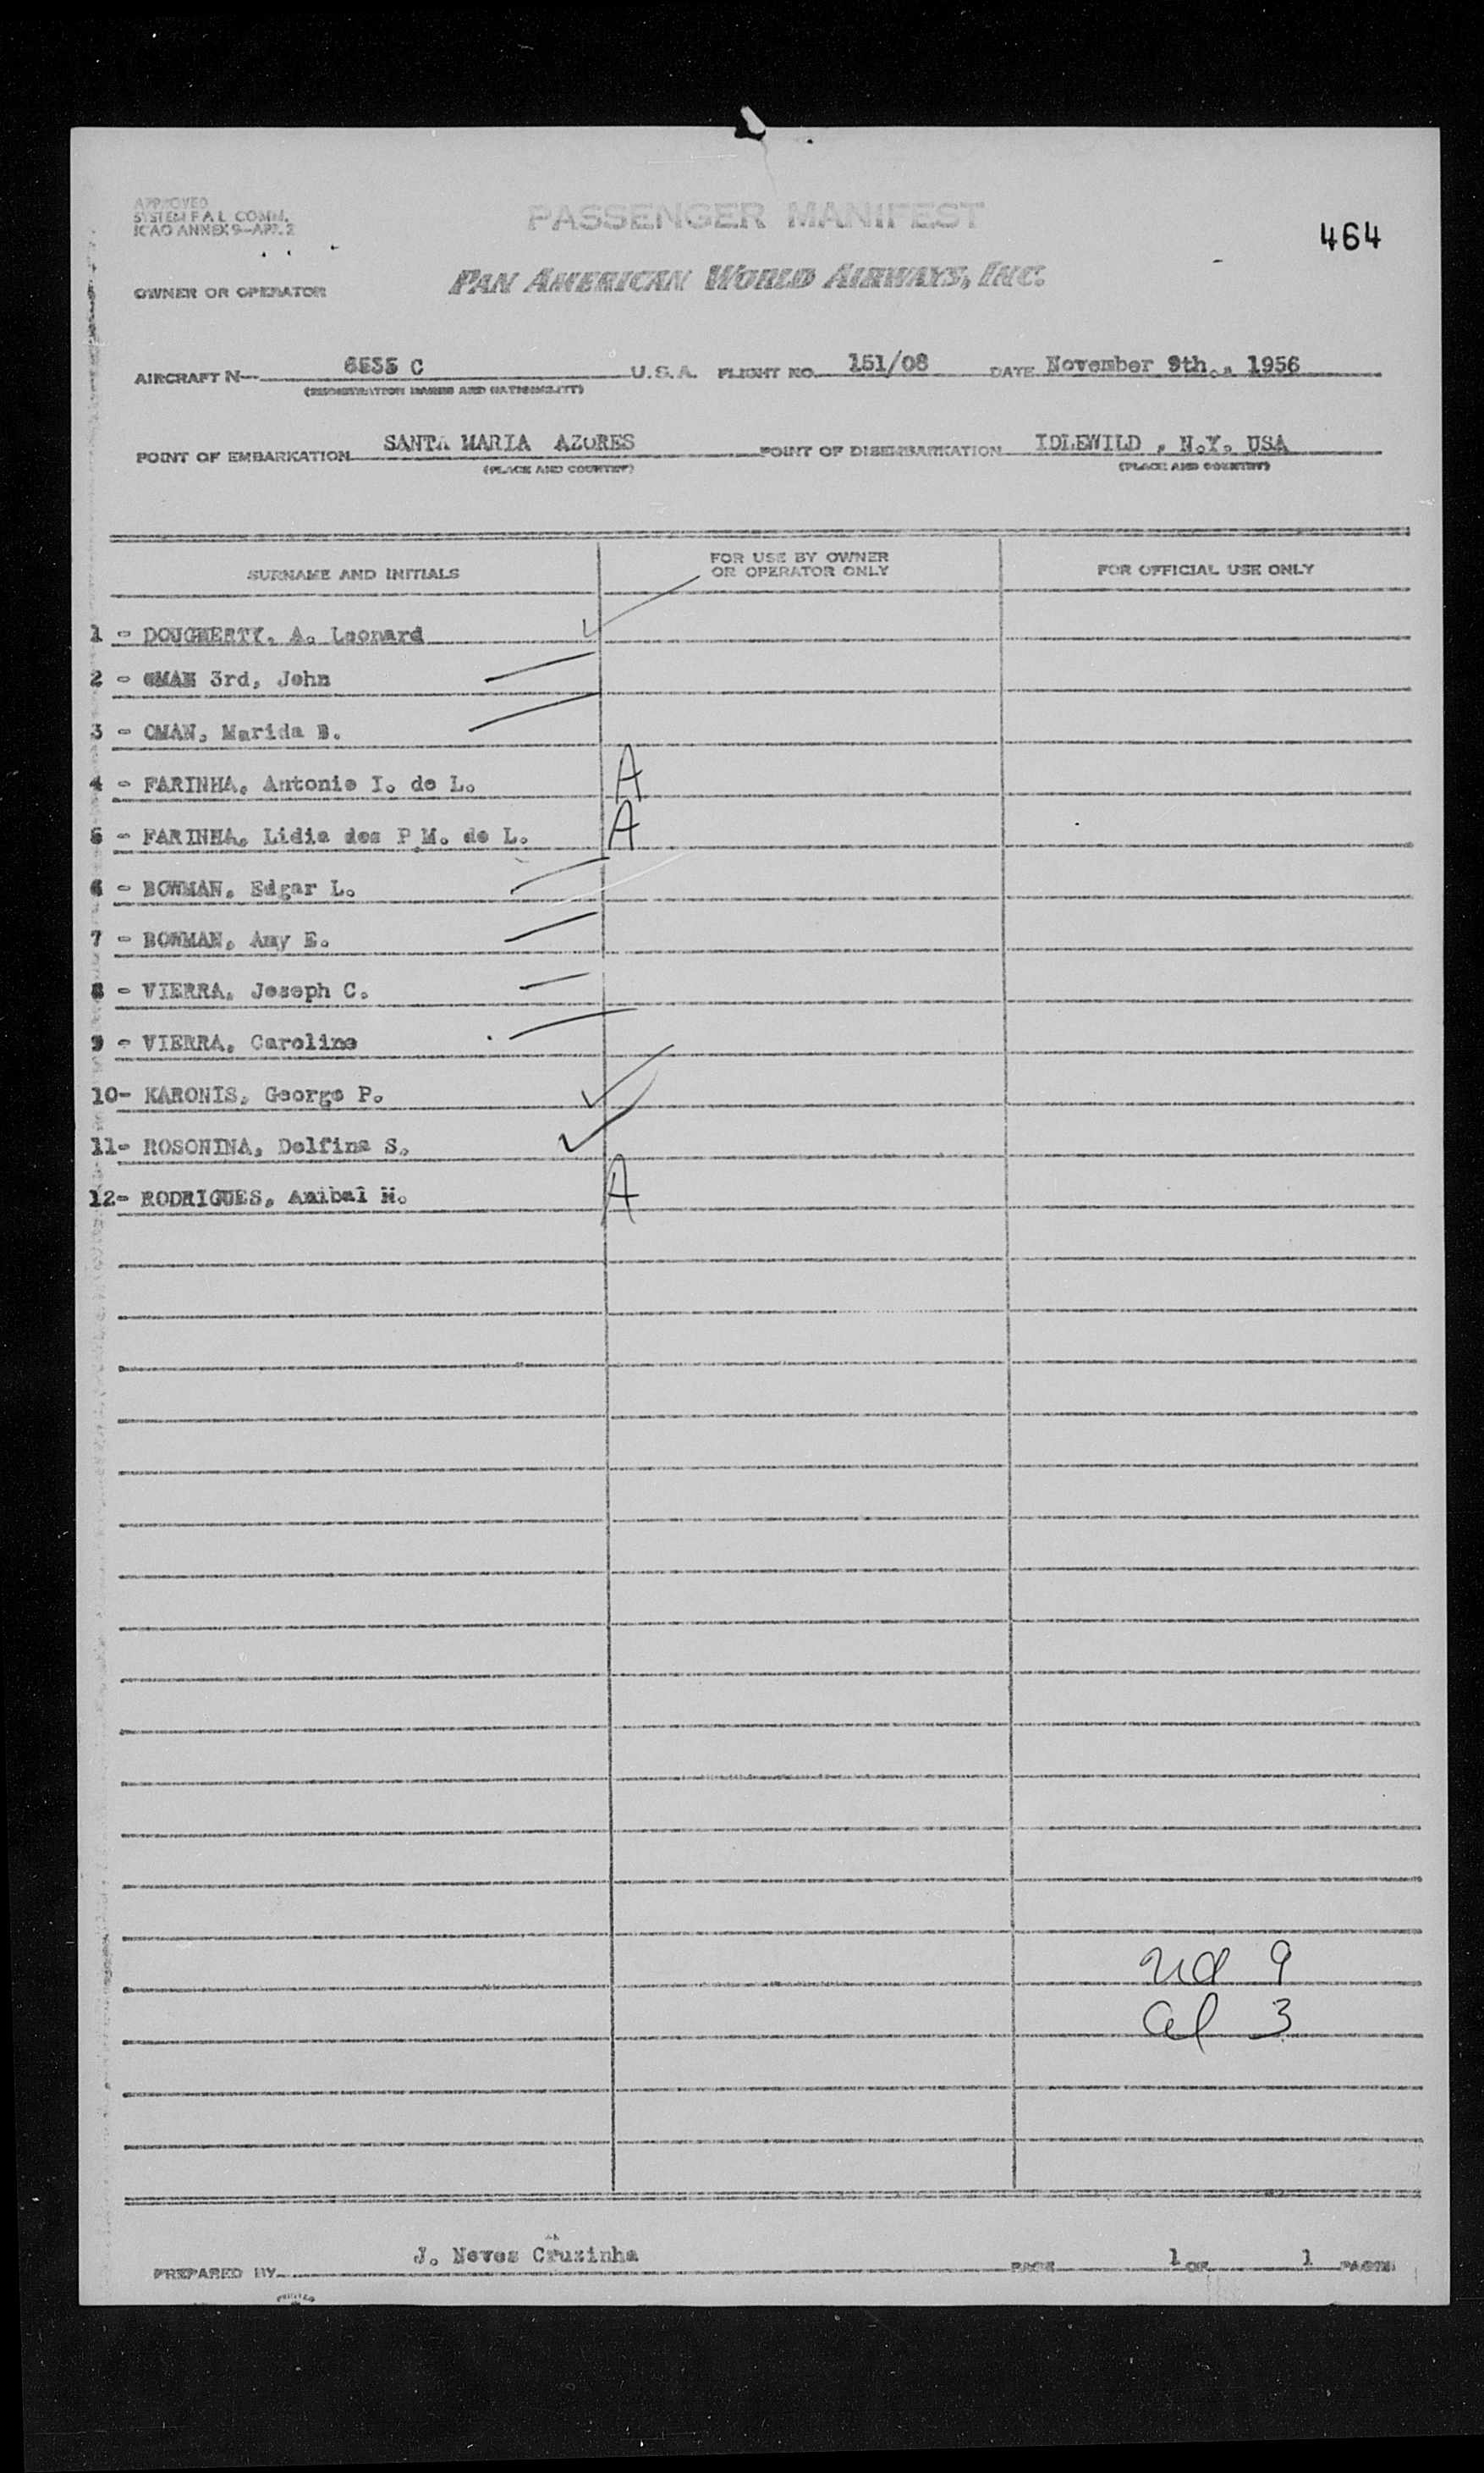 APPROVED
SYSTEM F A L COMM.
ICAO ANNEX 9-APP. 2
PASSENGER MANIFEST
464
OWNER OR OPERATOR
PAN AMERICAN WORLD AIRWAYS, INC.
AIRCRAFT N- C U.S.A. FLIGHT NO. 151/08 DATE November 9th., 1956
(REGISTRATION MARKS AND NATIONALITY)
POINT OF EMBARKATION SANTA MARIA AZORES POINT OF DISEMBARKATION IDLEWILD , N.Y. USA
(PLACE AND COUNTRY) (PLACE AND COUNTRY)
SURNAME AND INITIALS FOR USE BY OWNER OR OPERATOR ONLY FOR OFFICIAL USE ONLY
1 - DOUGHERTY, A. Leonard
2 - OMAN 3rd, John
3 - OMAN, Marida B.
4 - FARINHA, Antonio I. de L. A
5 - FARINHA, Lidia dos P.M. de L. A
6 - BOWMAN, Edgar L.
7 - BOWMAN, Amy E.
8 - VIERRA, Joseph C.
9 - VIERRA, Caroline
10- KARONIS, George P.
11- ROSONINA, Delfina S.
12- RODRIGUES, Anibal M. A
9
al 3
PREPARED BY J. Neves Cruzinha PAGE 1 OF 1 PAGES